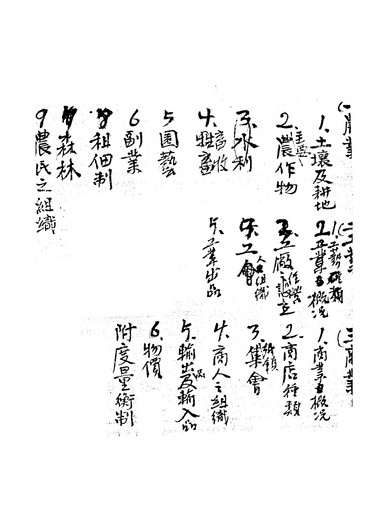 (一)農業
1. 土壤及耕地
2. 主要農作物
3. 水利
4. 畜牧
5 園藝
6 副業
7 租佃制
8 森林
9 農民之組織
(二)工業
1. 工藝種類
2. 工業之概況
3. 工廠
工會
人之組織
5. 工業出品
(三)商業
1. 商業之概況
2. 商店種類
3. 集會
4. 商人之組織
5. 輸出及輸入品
6. 物價
附度量衡制